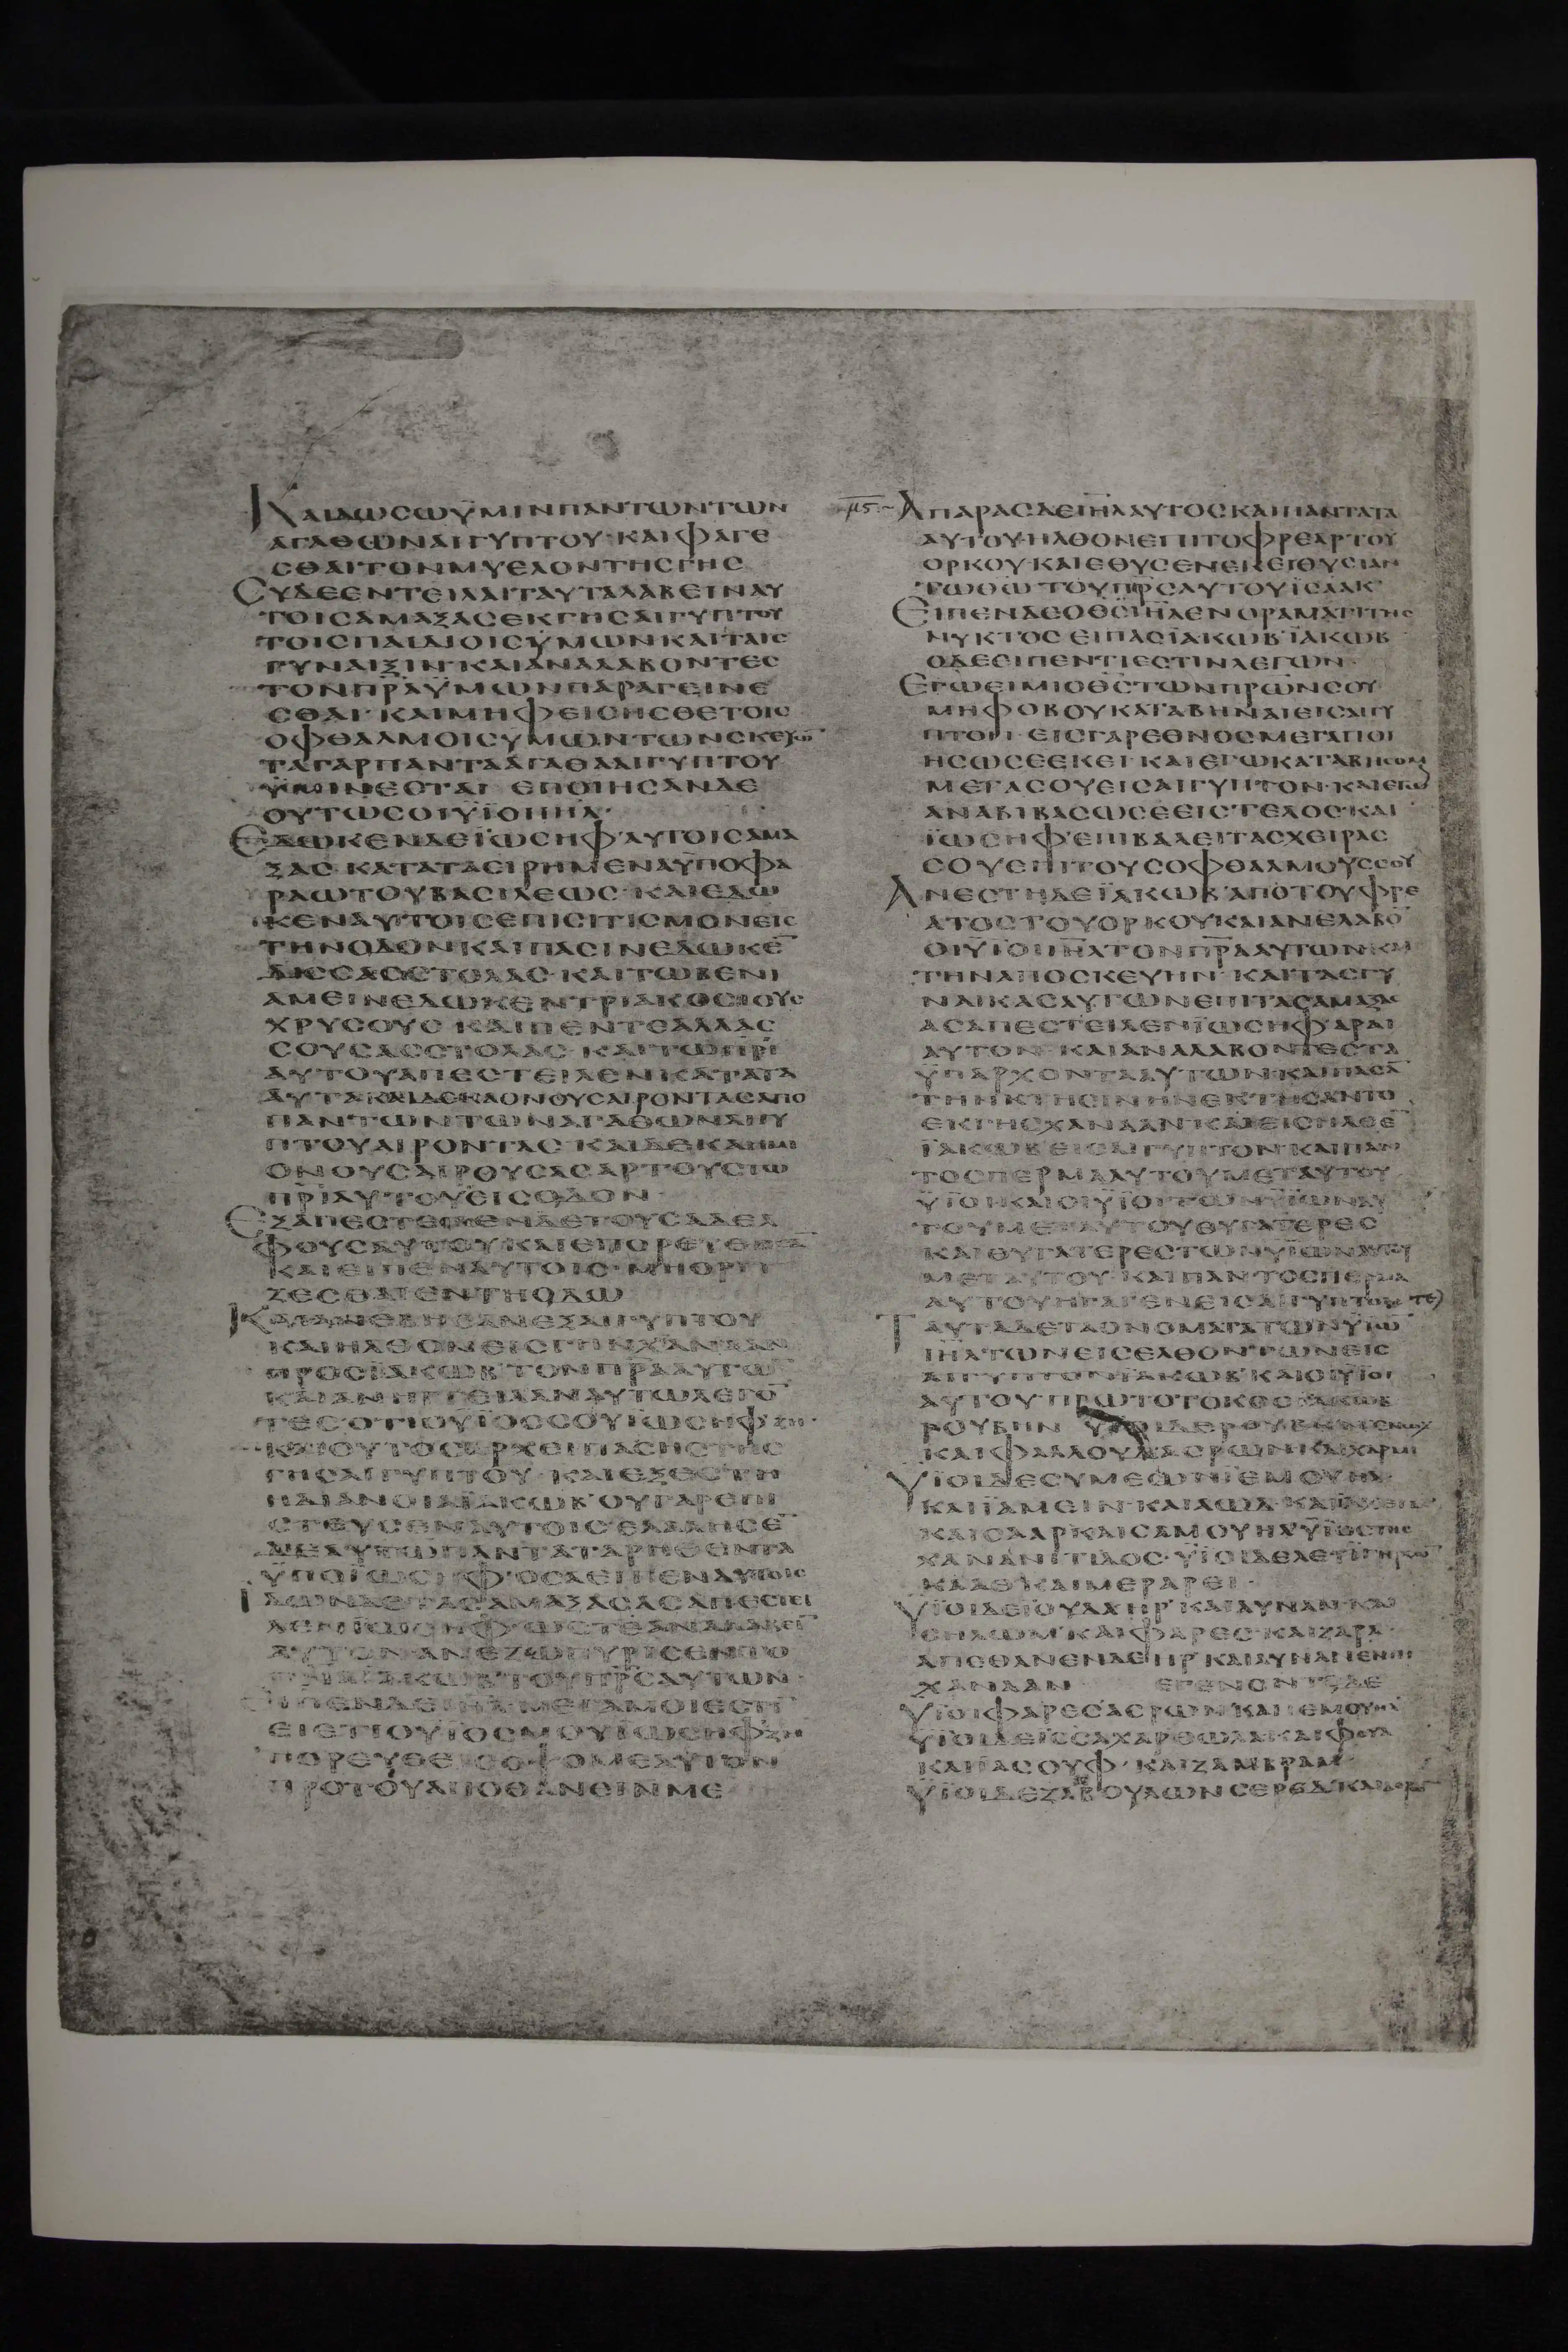 ΚΑΙΔΩΣΩΫΜΙΝΠΑΝΤΩΝΤΩΝ
ΑΓΑΘΩΝΑΙΓΥΠΤΟΥ·ΚΑΙΦΑΓΕ
ΣΘΑΙΤΟΝΜΥΕΛΟΝΤΗΣΓΗΣ
ΣΥΔΕΕΝΤΕΙΛΑΙΤΑΥΤΑΛΑΒΕΙΝΑΥ
ΤΟΙΣΑΜΑΞΑΣΕΚΓΗΣΑΙΓΥΠΤΟΥ
ΤΟΙΣΠΑΙΔΙΟΙΣΫΜΩΝΚΑΙΤΑΙΣ
ΓΥΝΑΙΞΙΝ·ΚΑΙΑΝΑΛΑΒΟΝΤΕΣ
ΤΟΝΠΡΑΫΜΩΝΠΑΡΑΓΕΙΝΕ
ΣΘΑΙ·ΚΑΙΜΗΦΕΙΣΗΣΘΕΤΟΙΣ
ΟΦΘΑΛΜΟΙΣΥΜΩΝΤΩΝΣΚΕΥΩ̄
ΤΑΓΑΡΠΑΝΤΑΑΓΑΘΑΑΙΓΥΠΤΟΥ
ΫΜΙΝΕΣΤΑΙ ΕΠΟΙΗΣΑΝΔΕ
ΟΥΤΩΣΟΙΫΪΟΙΙΗΛ·
ΕΔΩΚΕΝΔΕΪΩΣΗΦΑΥΤΟΙΣΑΜΑ
ΞΑΣ·ΚΑΤΑΤΑΕΙΡΗΜΕΝΑΫΠΟΦΑ
ΡΑΩΤΟΥΒΑΣΙΛΕΩΣ·ΚΑΙΕΔΩ
ΚΕΝΑΥΤΟΙΣΕΠΙΣΙΤΙΣΜΟΝΕΙΣ
ΤΗΝΟΔΟΝ·ΚΑΙΠΑΣΙΝΕΔΩΚΕ̄
ΔΙΣΣΑΣΣΤΟΛΑΣ·ΚΑΙΤΩΒΕΝΙ
ΑΜΕΙΝΕΔΩΚΕΝΤΡΙΑΚΟΣΙΟΥΣ
ΧΡΥΣΟΥΣ ΚΑΙΠΕΝΤΕΑΛΛΑΣ
ΣΟΥΣΑΣΣΤΟΛΑΣ·ΚΑΙΤΩΠΡΙ
ΑΥΤΟΥΑΠΕΣΤΕΙΛΕΝΚΑΤΑΤΑ
ΑΥΤΑΚΑΙΔΕΚΑΟΝΟΥΣΑΙΡΟΝΤΑΣΑΠΟ
ΠΑΝΤΩΝΤΩΝΑΓΑΘΩΝΑΙΓΥ
ΠΤΟΥΑΙΡΟΝΤΑΣ ΚΑΙΔΕΚΑΗΜΙ
ΟΝΟΥΣΑΙΡΟΥΣΑΣΑΡΤΟΥΣΤΩ
ΠΡΙΑΥΤΟΥΕΙΣΟΔΟΝ·
ΕΞΑΠΕΣΤΕΙΛΕΝΔΕΤΟΥΣΑΔΕΛ
ΦΟΥΣΑΥΤΟΥΚΑΙΕΠΟΡΕΥΘΗΣᾹ
ΚΑΙΕΙΠΕΝΑΥΤΟΙΣ·ΜΗΟΡΓΙ
ΖΕΣΘΑΙΕΝΤΗΟΔΩ
ΚΑΙΑΝΕΒΗΣΑΝΕΞΑΙΓΥΠΤΟΥ
ΚΑΙΗΛΘΟΝΕΙΣΓΗΝΧΑΝΑΑΝ
ΠΡΟΣΪΑΚΩΒ ΤΟΝΠΡΑΑΥΤΩ̄
ΚΑΙΑΝΗΓΓΕΙΛΑΝΑΥΤΩΛΕΓΟ̄
ΤΕΣΟΤΙΟΥΪΟΣΣΟΥΪΩΣΗΦΖΗ·
ΚΑΙΟΥΤΟΣΑΡΧΕΙΠΑΣΗΣΤΗΣ
ΓΗΣΑΙΓΥΠΤΟΥ·ΚΑΙΕΞΕΣΤΗ
ΗΔΙΑΝΟΙΑΪΑΚΩΒ ΟΥΓΑΡΕΠΙ
ΣΤΕΥΣΕΝΑΥΤΟΙΣ ΕΛΑΛΗΣΕ̄
ΔΕΑΥΤΩΠΑΝΤΑΤΑΡΗΘΕΝΤΑ
ΥΠΟΪΩΣΗΦ·ΟΣΑΕΙΠΕΝΑΥΤΟΙΣ
ΙΔΩΝΔΕΤΑΣΑΜΑΞΑΣΑΣΑΠΕΣΤΕΙ
ΛΕΝΪΩΣΗΦΩΣΤΕΑΝΑΛΑΒΕῙ
ΑΥΤΟΝΑΝΕΖΩΠΥΡΙΣΕΝΤΟ
ΠΝΑΪΑΚΩΒ ΤΟΥΠΡΣΑΥΤΩΝ
ΕΙΠΕΝΔΕΙΗΛ·ΜΕΓΑΜΟΙΕΣΤῙ
ΕΙΕΤΙΟΥΪΟΣΜΟΥΪΩΣΗΦΖΗ
ΠΟΡΕΥΘΕΙΣΟΨΟΜΕΑΥΤΟΝ
ΠΡΟΤΟΥΑΠΟΘΑΝΕΙΝΜΕ
μς ΑΠΑΡΑΣΔΕΙΗΛΑΥΤΟΣΚΑΙΠΑΝΤΑΤΑ
ΑΥΤΟΥ·ΗΛΘΟΝΕΠΙΤΟΦΡΕΑΡΤΟΥ
ΟΡΚΟΥ·ΚΑΙΕΘΥΣΕΝΕΚΕΙΘΥΣΙΑΝ
ΤΩΘΩ ΤΟΥΠΡΣΑΥΤΟΥΪΣΑΑΚ
ΕΙΠΕΝΔΕΟΘΣΙΗΛΕΝΟΡΑΜΑΤΙΤΗΣ
ΝΥΚΤΟΣ ΕΙΠΑΣΪΑΚΩΒ ΪΑΚΩΒ
ΟΔΕΕΙΠΕΝΤΙΕΣΤΙΝΛΕΓΩΝ·
ΕΓΩΕΙΜΙΟΘΣΤΩΝΠΡΩΝΣΟΥ
ΜΗΦΟΒΟΥΚΑΤΑΒΗΝΑΙΕΙΣΑΙΓΥ
ΠΤΟΝ· ΕΙΣΓΑΡΕΘΝΟΣΜΕΓΑΠΟΙ
ΗΣΩΣΕΕΚΕΙ ΚΑΙΕΓΩΚΑΤΑΒΗΣΟΜ
ΜΕΤΑΣΟΥΕΙΣΑΙΓΥΠΤΟΝ·ΚΑΙΕΓΩ
ΑΝΑΒΙΒΑΣΩΣΕΕΙΣΤΕΛΟΣ·ΚΑΙ
ΪΩΣΗΦΕΠΙΒΑΛΕΙΤΑΣΧΕΙΡΑΣ
ΣΟΥΕΠΙΤΟΥΣΟΦΘΑΛΜΟΥΣΣΟΥ
ΑΝΕΣΤΗΔΕΪΑΚΩΒ ΑΠΟΤΟΥΦΡΕ
ΑΤΟΣΤΟΥΟΡΚΟΥΚΑΙΑΝΕΛΑΒΟ̄
ΟΙΥΪΟΙΙΗΛΤΟΝΠΡΑΑΥΤΩΝΚΑΙ
ΤΗΝΑΠΟΣΚΕΥΗΝ·ΚΑΙΤΑΣΓΥ
ΝΑΙΚΑΣΑΥΤΩΝΕΠΙΤΑΣΑΜΑΞΑΣ
ΑΣΑΠΕΣΤΕΙΛΕΝΪΩΣΗΦΑΡΑΙ
ΑΥΤΟΝ·ΚΑΙΑΝΑΛΑΒΟΝΤΕΣΤΑ
ΫΠΑΡΧΟΝΤΑΑΥΤΩΝΚΑΙΠΑΣᾹ
ΤΗΝΚΤΗΣΙΝΗΝΕΚΤΗΣΑΝΤΟ
ΕΚΓΗΣΧΑΝΑΑΝ·ΚΑΙΕΙΣΗΛΘΕ̄
ΪΑΚΩΒΕΙΣΑΙΓΥΠΤΟΝ·ΚΑΙΠΑΝ
ΤΟΣΠΕΡΜΑΑΥΤΟΥΜΕΤΑΥΤΟΥ
ΫΪΟΙΚΑΙΟΙΫΪΟΙΤΩΝΥΪΩΝΑΥ
ΤΟΥΜΕΤΑΥΤΟΥΘΥΓΑΤΕΡΕΣ
ΚΑΙΘΥΓΑΤΕΡΕΣΤΩΝΥΪΩΝΑΥΤΟΥ
ΜΕΤΑΥΤΟΥ·ΚΑΙΠΑΝΤΟΣΠΕΡΜΑ
ΑΥΤΟΥΗΓΑΓΕΝΕΙΣΑΙΓΥΠΤΟΝ
ΤΑΥΤΑΔΕΤΑΟΝΟΜΑΤΑΤΩΝΥΪΩ̄
ΙΗΛΤΩΝΕΙΣΕΛΘΟΝΤΩΝΕΙΣ
ΑΙΓΥΠΤΟΝΪΑΚΩΒ ΚΑΙΟΙΥΪΟΙ
ΑΥΤΟΥ·ΠΡΩΤΟΤΟΚΟΣΪΑΚΩΒ
ΡΟΥΒΗΝ ΥΪΟΙΔΕΡΟΥΒΗΝΕΝΩΧ
ΚΑΙΦΑΛΛΟΥΔΑΣΡΩΝΚΑΙΧΑΡΜΙ
ΥΪΟΙΔΕΣΥΜΕΩΝΪΕΜΟΥΗΛ·
ΚΑΙΪΑΜΕΙΝ·ΚΑΙΑΩΔ·ΚΑΙΪΑΧΕΙΝ
ΚΑΙΣΑΑΡΚΑΙΣΑΜΟΥΗΛΥΪΟΣΤΗΣ
ΧΑΝΑΝΙΤΙΔΟΣ·ΥΪΟΙΔΕΛΕΥΪΓΗΡΣΩ̄
ΚΑΑΘ ΚΑΙΜΕΡΑΡΕΙ·
ΥΪΟΙΔΕΪΟΥΔΑΗΡ ΚΑΙΑΥΝΑΝ·ΚΑΙ
ΣΗΛΩΜ·ΚΑΙΦΑΡΕΣ·ΚΑΙΖΑΡΑ·
ΑΠΕΘΑΝΕΝΔΕΗΡ ΚΑΙΑΥΝΑΝΕΝΓΗ
ΧΑΝΑΑΝ ΕΓΕΝΟΝΤΟΔΕ
ΥΪΟΙΦΑΡΕΣΑΣΡΩΝΚΑΙΙΕΜΟΥΗΛ
ΥΪΟΙΔΕΪΣΣΑΧΑΡΘΩΛΑΚΑΙΦΟΥΑ
ΚΑΙΪΑΣΟΥΦ·ΚΑΙΖΑΜΒΡΑΜ·
ΥΪΟΙΔΕΖΑΒΟΥΛΩΝΣΕΡΕΔ